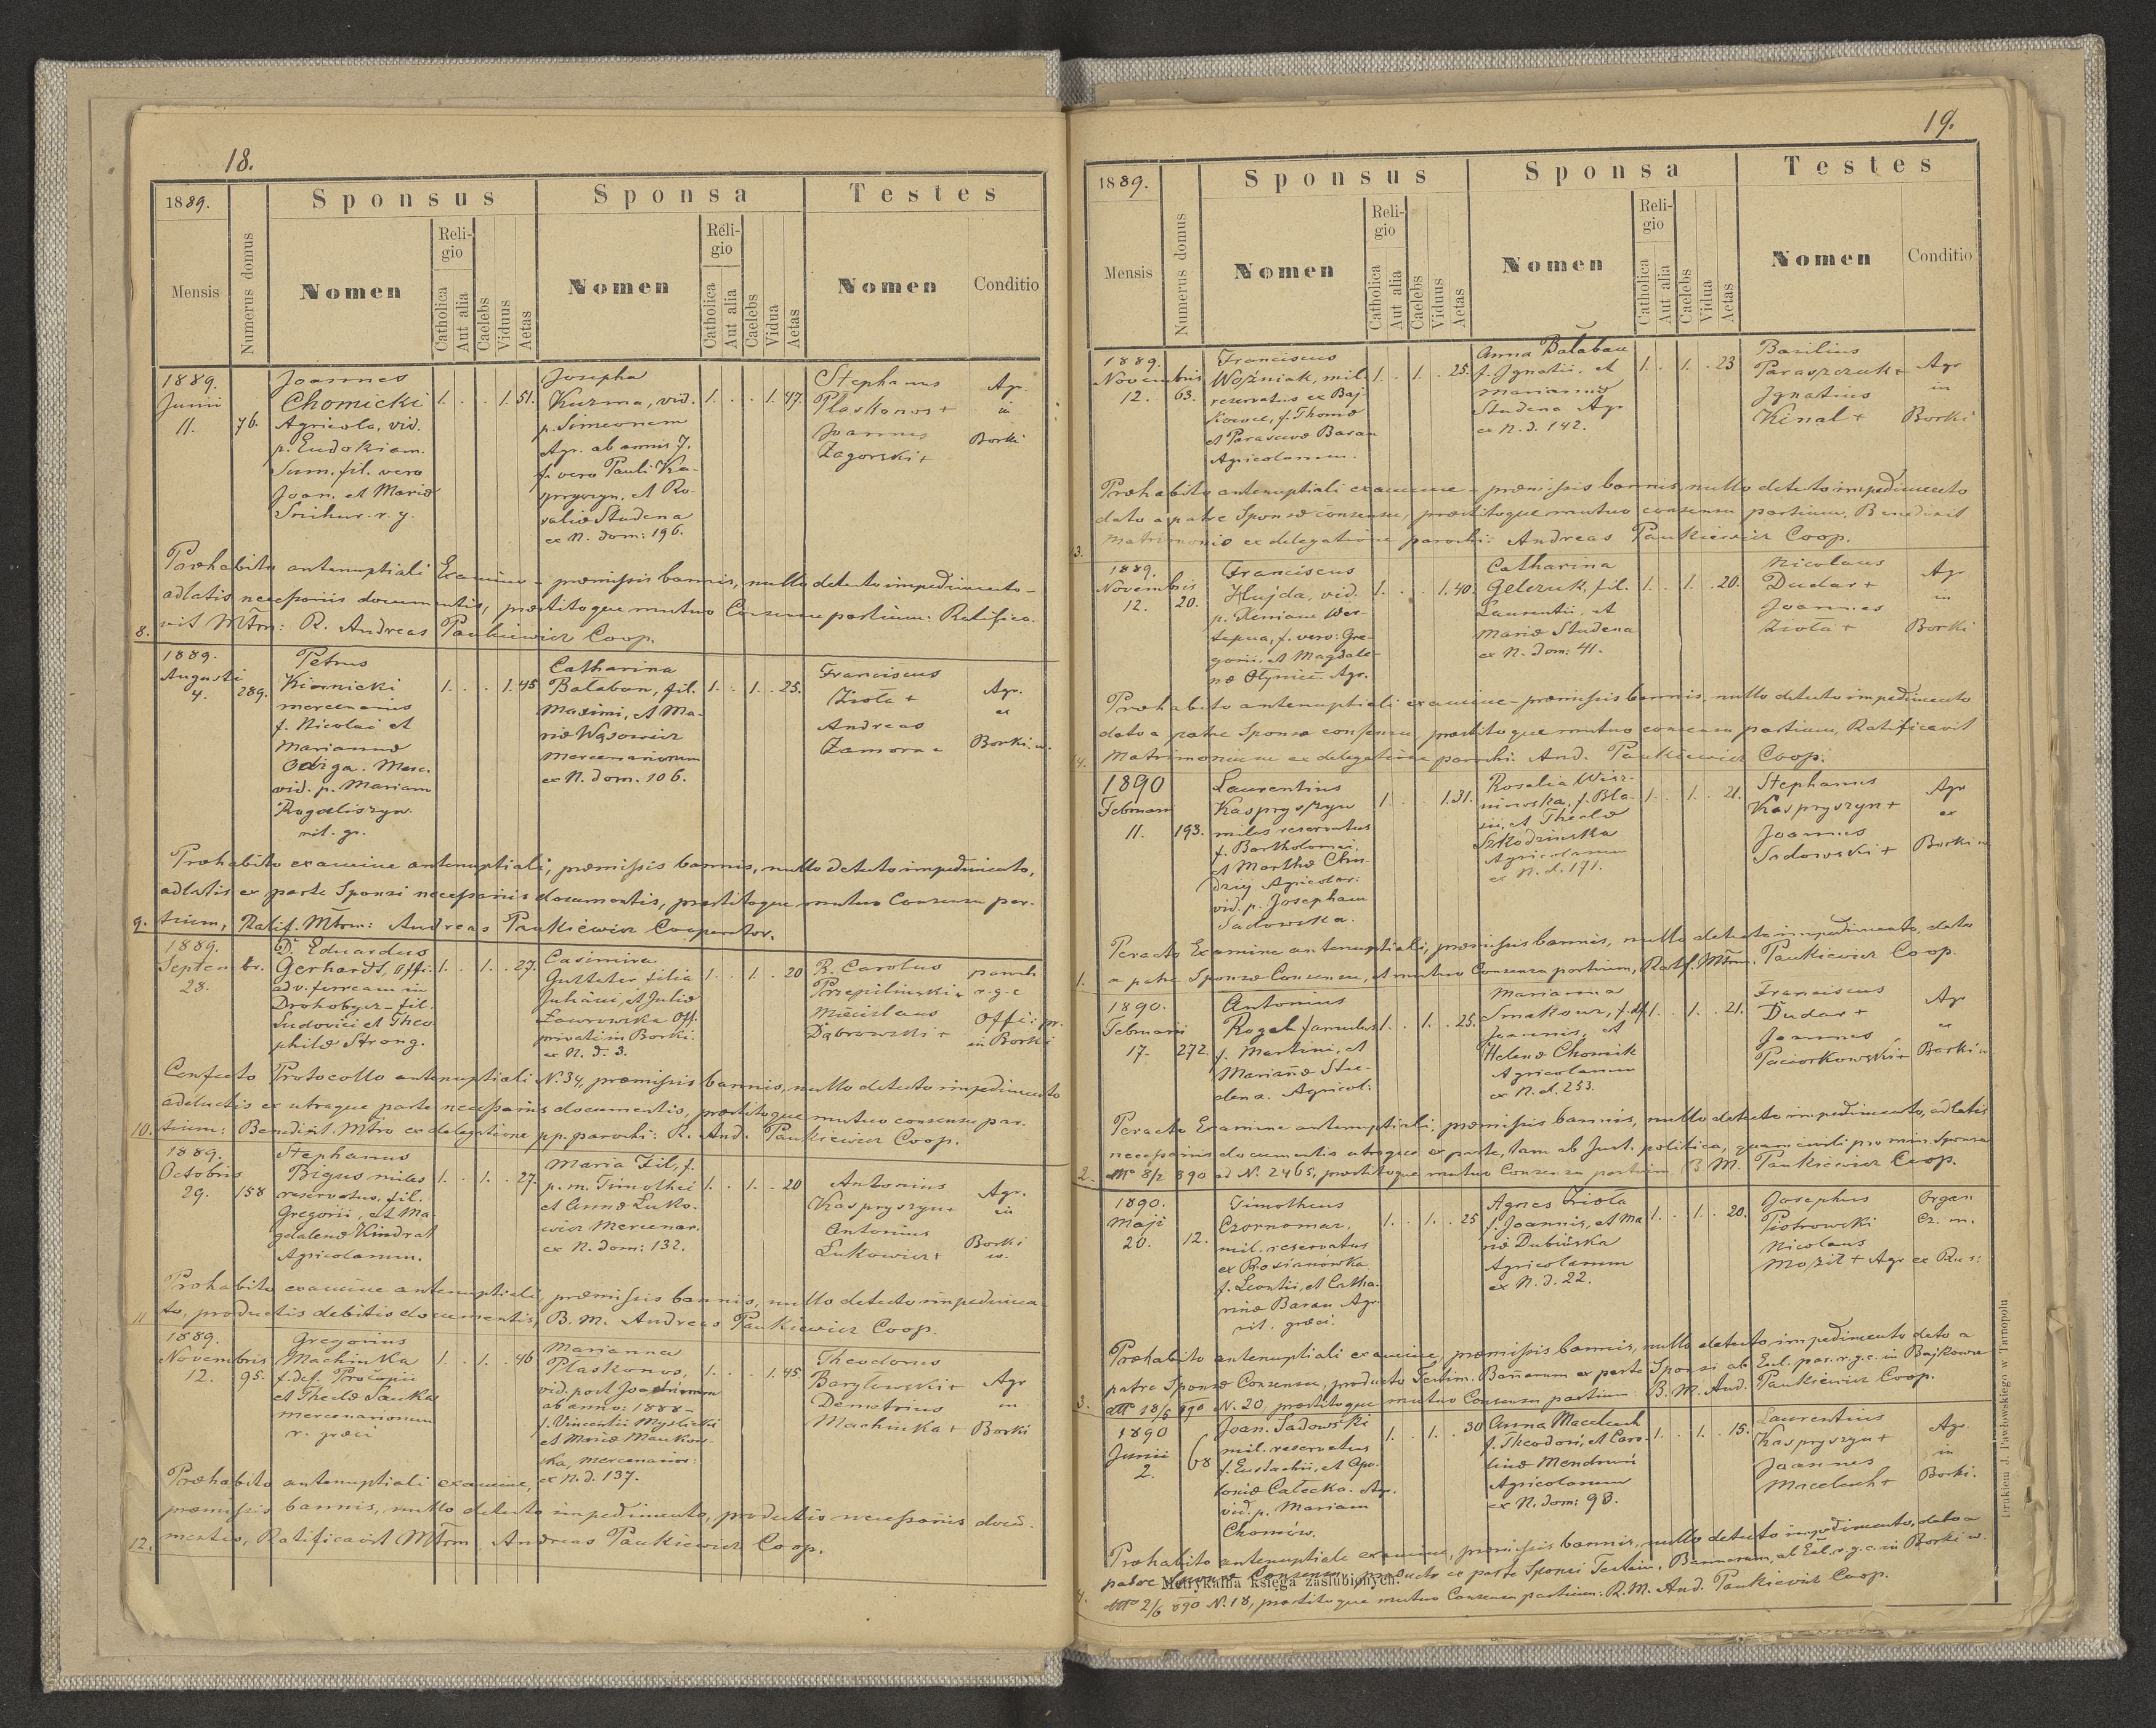 18.
1889.
Sponsus
Sponsa
Testes
Mensis
Numerus domus
Nomen
Religio
Catholica
Aut alia
Caelebs
Viduus
Aetas
Nomen
Religio
Catholica
Aut alia
Caelebs
Vidua
Aetas
Nomen
Conditio
1889.
Junii
11.
76.
Joannes
Chomicki
Agricola, vid.
p. Eudokiam.
Sum. fil. vero
Joan. et Mariæ
Snihur. r. g.
1. . . 1. 51.
Josepha
Kuzma, vid.
p. Simeonem
Agr. ab annis 7.
f. vero Pauli Ka-
spryszyn. et Ro-
saliæ Studena
ex N. dom: 196.
1. . . 1. 47.
Stephanus
Plaskonos +
Joannes
Zagorski +
Agr.
in
Borki
Præhabito antenuptiali Examine - præmissis bannis, nullo detecto impedimento -
adlatis necessariis documentis, præstitoque mutuo Consensu partium: Ratifica-
8. vit Mtrm: R. Andreas Paukiewicz Coop.
1889.
Augusti
4.
289.
Petrus
Kiernicki
mercenarius
f. Nicolai et
Mariannæ
Merc.
vid. p. Mariam
Rogaliszyn.
rit. gr.
1. . . 1. 45
Catharina
Bałaban, fil.
Maximi, et Ma-
riæ Wąsowicz
Mercenariorum
ex N. dom. 106.
1. . 1. . 25.
Franciscus
Zioła +
Andreas
Zamorna
Agr.
ex
Borki. w.
Præhabito examine antenuptiali, præmissis bannis, nullo detecto impedimento,
adlatis ex parte Sponsi necessariis documentis, præstitoque mutuo Consensu par-
9. tium, Ratif. Mtrm: Andreas Paukiewicz Cooperator.
1889.
Septembr.
28.
D. Eduardus
Gerhardt, offi.
adv. ferream in
Drohobycz - fil.
Ludovici et Theo
philæ Strong.
1. . 1. . 27.
Casimira
filia
Juliani, et Juliæ
Ławrowska Off.
privati in Borki.
ex N. d. 3.
1. . 1. . 20
R. Carolus
Przepiliński +
Miecislaus
Dąbrowski +
paroch
r. g. c
Offi: pr.
in Borki
Confecto Protocollo antenuptiali N. 34, præmissis bannis, nullo detecto impedimento
adductis ex utraque parte necessariis documentis, præstitoque mutuo consensu par-
10. tium: Benedixit Mtro ex delegatione pp. parochi: R. And. Paukiewicz Coop.
1889.
Octobris
29.
158
Stephanus
Bigus miles
reservatus, fil.
Gregorii, et Ma-
gdalenæ Kindrat
Agricolarum.
1. . 1. . 27.
Maria Fil, f.
p. m. Timothei
et Annæ Łuko-
wicz Mercenar.
ex N. dom: 132.
1. . 1. . 20
Antonius
Kaspryszyn +
Antonius
Łukowicz +
Agr.
in
Borki
w.
Præhabito examine antenuptiali, præmissis bannis, nullo detecto impedimen-
11. to, productis debitis documentis, B. M. Andreas Paukiewicz Coop.
1889.
Novembris
12.
95.
Gregorius
Machinka
f. def. Procopii
et Theclæ Sauka
mercenariorum
r. græci
1. . 1. . 46
Marianna
Plaskonos,
vid. post Joachimum
ab anno: 1888 -
f. Vincentii Myslicki
et Mariæ Mankow-
ska, mercenarior:
ex N. d. 137.
1. . . 1. 45
Theodorus
Baryłowski +
Demetrius
Machinka +
Agr
in
Borki
Præhabito antenuptiali examine,
præmissis bannis, nullo detecto impedimento, productis necessariis docu-
12. mentis, Ratificavit Mtrm Andreas Paukiewicz Coop.
19.
1889.
Sponsus
Sponsa
Testes
Mensis
Numerus domus
Nomen
Religio
Catholica
Aut alia
Caelebs
Viduus
Aetas
Nomen
Religio
Catholica
Aut alia
Caelebs
Vidua
Aetas
Nomen
Conditio
1889.
Novembris
12.
63.
Franciscus
Woźniak, mil.
reservatus ex Baj-
kowce, f. Thomæ
et Parascevæ Baran
Agricolarum.
1. . 1. . 25.
Anna Bałaban
f. Ignatii, et
Mariannæ
Studena Agr
ex N. d. 142.
1. . 1. . 23
Basilius
Paraszczuk +
Ignatius
Kinal +
Agr
in
Borki
Præhabito antenuptiali examine - præmissis bannis, nullo detecto impedimento
dato a patre Sponsæ consensu, præstitoque mutuo consensu partium, Benedixit
13. Matrimonio ex delegatione parochi: Andreas Paukiewicz Coop.
1889.
Novembris
12.
20.
Franciscus
Hujda, vid.
p. Xeniam Wer-
f. vero: Gre-
gorii, et Magdale-
næ Agr.
1. . . 1. 40.
Catharina
Gelczuk, fil.
Laurentii, et
Mariæ Studena
ex N. dom: 41.
1. . 1. . 20.
Nicolaus
Dudar +
Joannes
Zioła +
Agr
in
Borki
Præhabito antenuptiali examine - præmissis bannis, nullo detecto impedimento
dato a patre Sponsæ consensu, præstitoque mutuo consensu partium, Ratificavit
14. Matrimonium ex delegatione parochi. And. Paukiewicz Coop.
1890
Februarii
11.
193.
Laurentius
Kaspryszyn
miles reservatus
f. Bartholomei,
et Marthæ Chu-
dziej Agricolar:
vid. p. Josepham
Sadowska.
1. . . 1. 31.
Rosalia Wisz-
niowska, f. Bla-
sii, et Theclæ
Szkodzinska
Agricolarum
ex N. d. 171.
1. . 1. . 21.
Stephanus
Kaspryszyn +
Joannes
Sadowski +
Agr
ex
Borki w
Peracto Examine antenuptiali, præmissis bannis, nullo detecto impedimento, dato
1. a patre Sponsæ Consensu, et mutuo Consensu partium, Ratif. Mtrm. Paukiewicz Coop.
1890.
Februarii
17.
272.
Antonius
Rogal famulus
f. Martini, et
Mariannæ Stu-
dena. Agricol:
1. . 1. . 25.
Marianna
Smakouz, f. df
Joannis, et
Helenæ Chomik
Agricolarum
ex N. d. 253.
1. . 1. . 21.
Franciscus
Dudar +
Joannes
Paciorkowski +
Agr
ex
Borki w
Peracto Examine antenuptiali, præmissis bannis, nullo detecto impedimento, adlatis
necessariis documentis utraque ex parte, tam ab Inst. politica, quam civili pro min. Sponsa
2. dtto 8/2 890 ad N. 2465, præstitoque mutuo Consensu partium B. M. Paukiewicz Coop.
1890.
Maji
20.
12.
Timotheus
Czornomaz,
mil. reservatus
ex Rosianówka
f. Leontii, et Catha-
rinæ Baran Agr.
rit. græci.
1. . 1. . 25
Agnes Zioła
f. Joannis, et Ma
riæ Dubińska
Agricolarum
ex N. d. 22.
1. . 1. . 20.
Josephus
Piotrowski
Nicolaus
Mozil + Agr ex Rus:
Organ
Cz. m.
Præhabito antenuptiali examine, præmissis bannis, nullo detecto impedimento dato a
patre Sponsæ Consensu, producto Testim. Bannorum ex parte Sponsi ab Eccl. par. r. g. c. in Bajkowce
3. dtto 18/5 890 N. 20, præstitoque mutuo Consensu partium: B. M. And. Paukiewicz Coop.
1890
Junii
2.
68
Joan. Sadowski
mil. reservatus
f. Eustachii, et Apo-
loniæ Całecka. Agr.
vid. p. Mariam
Chomów.
1. . 1. . 30
Anna Maceluch
f. Theodori, et Caro-
linæ Mendruń
Agricolarum
ex N. dom: 93.
1. . 1. . 15.
Laurentius
Kaspryszyn +
Joannes
Maceluch +
Agr.
in
Borki.
Præhabito antenuptiale examine, præmissis bannis, nullo detecto impedimento, dato a
patre Sponsæ Consensu, producto ex parte Sponsi Testim. Bannorum, ab Eccl. r. g. c. in Borki w.
4. dtto 2/6 890 N. 18, præstitoque mutuo Consensu partium: B. M. And. Paukiewicz Coop.
Metrykalna księga zaślubionych.
Drukiem J. Pawłowskiego w Tarnopolu